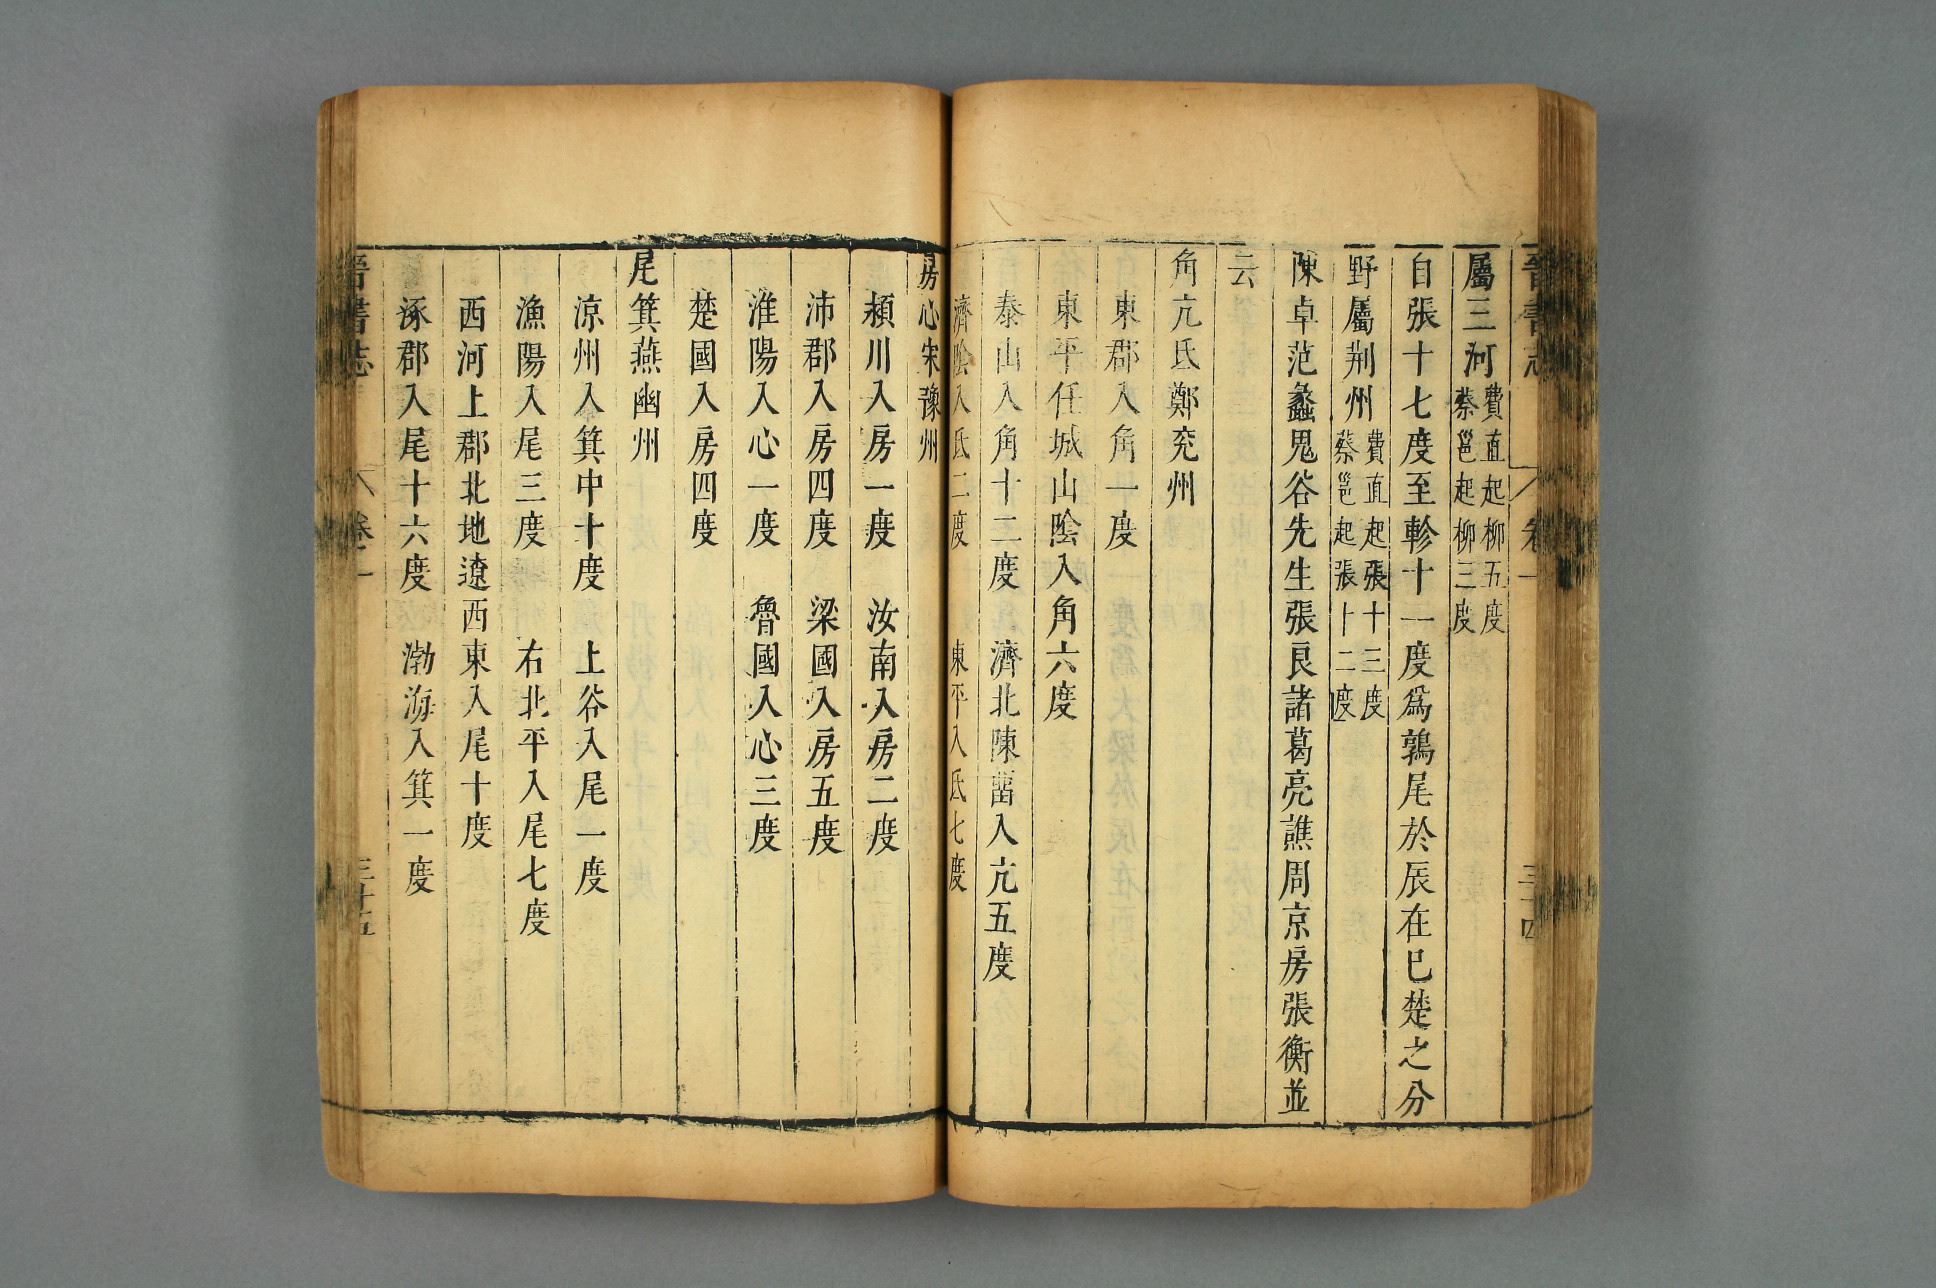 晉書志 卷一 三十四
屬三河 費直起柳五度 蔡邕起柳三度
自張十七度至軫十一度爲鶉尾於辰在巳楚之分
野屬荆州 費直起張十三度 蔡邕起張十二度
陳卓范蠡鬼谷先生張良諸葛亮譙周京房張衡並
云
角亢氐鄭兖州
東郡入角一度
東平任城山陰入角六度
泰山入角十二度 濟北陳畱入亢五度
濟陰入氐二度 東平入氐七度
房心宋豫州
潁川入房一度 汝南入房二度
沛郡入房四度 梁國入房五度
淮陽入心一度 魯國入心三度
楚國入房四度
尾箕燕幽州
凉州入箕中十度 上谷入尾一度
漁陽入尾三度 右北平入尾七度
西河上郡北地遼西東入尾十度
涿郡入尾十六度 渤海入箕一度
晉書志 卷一 三十五